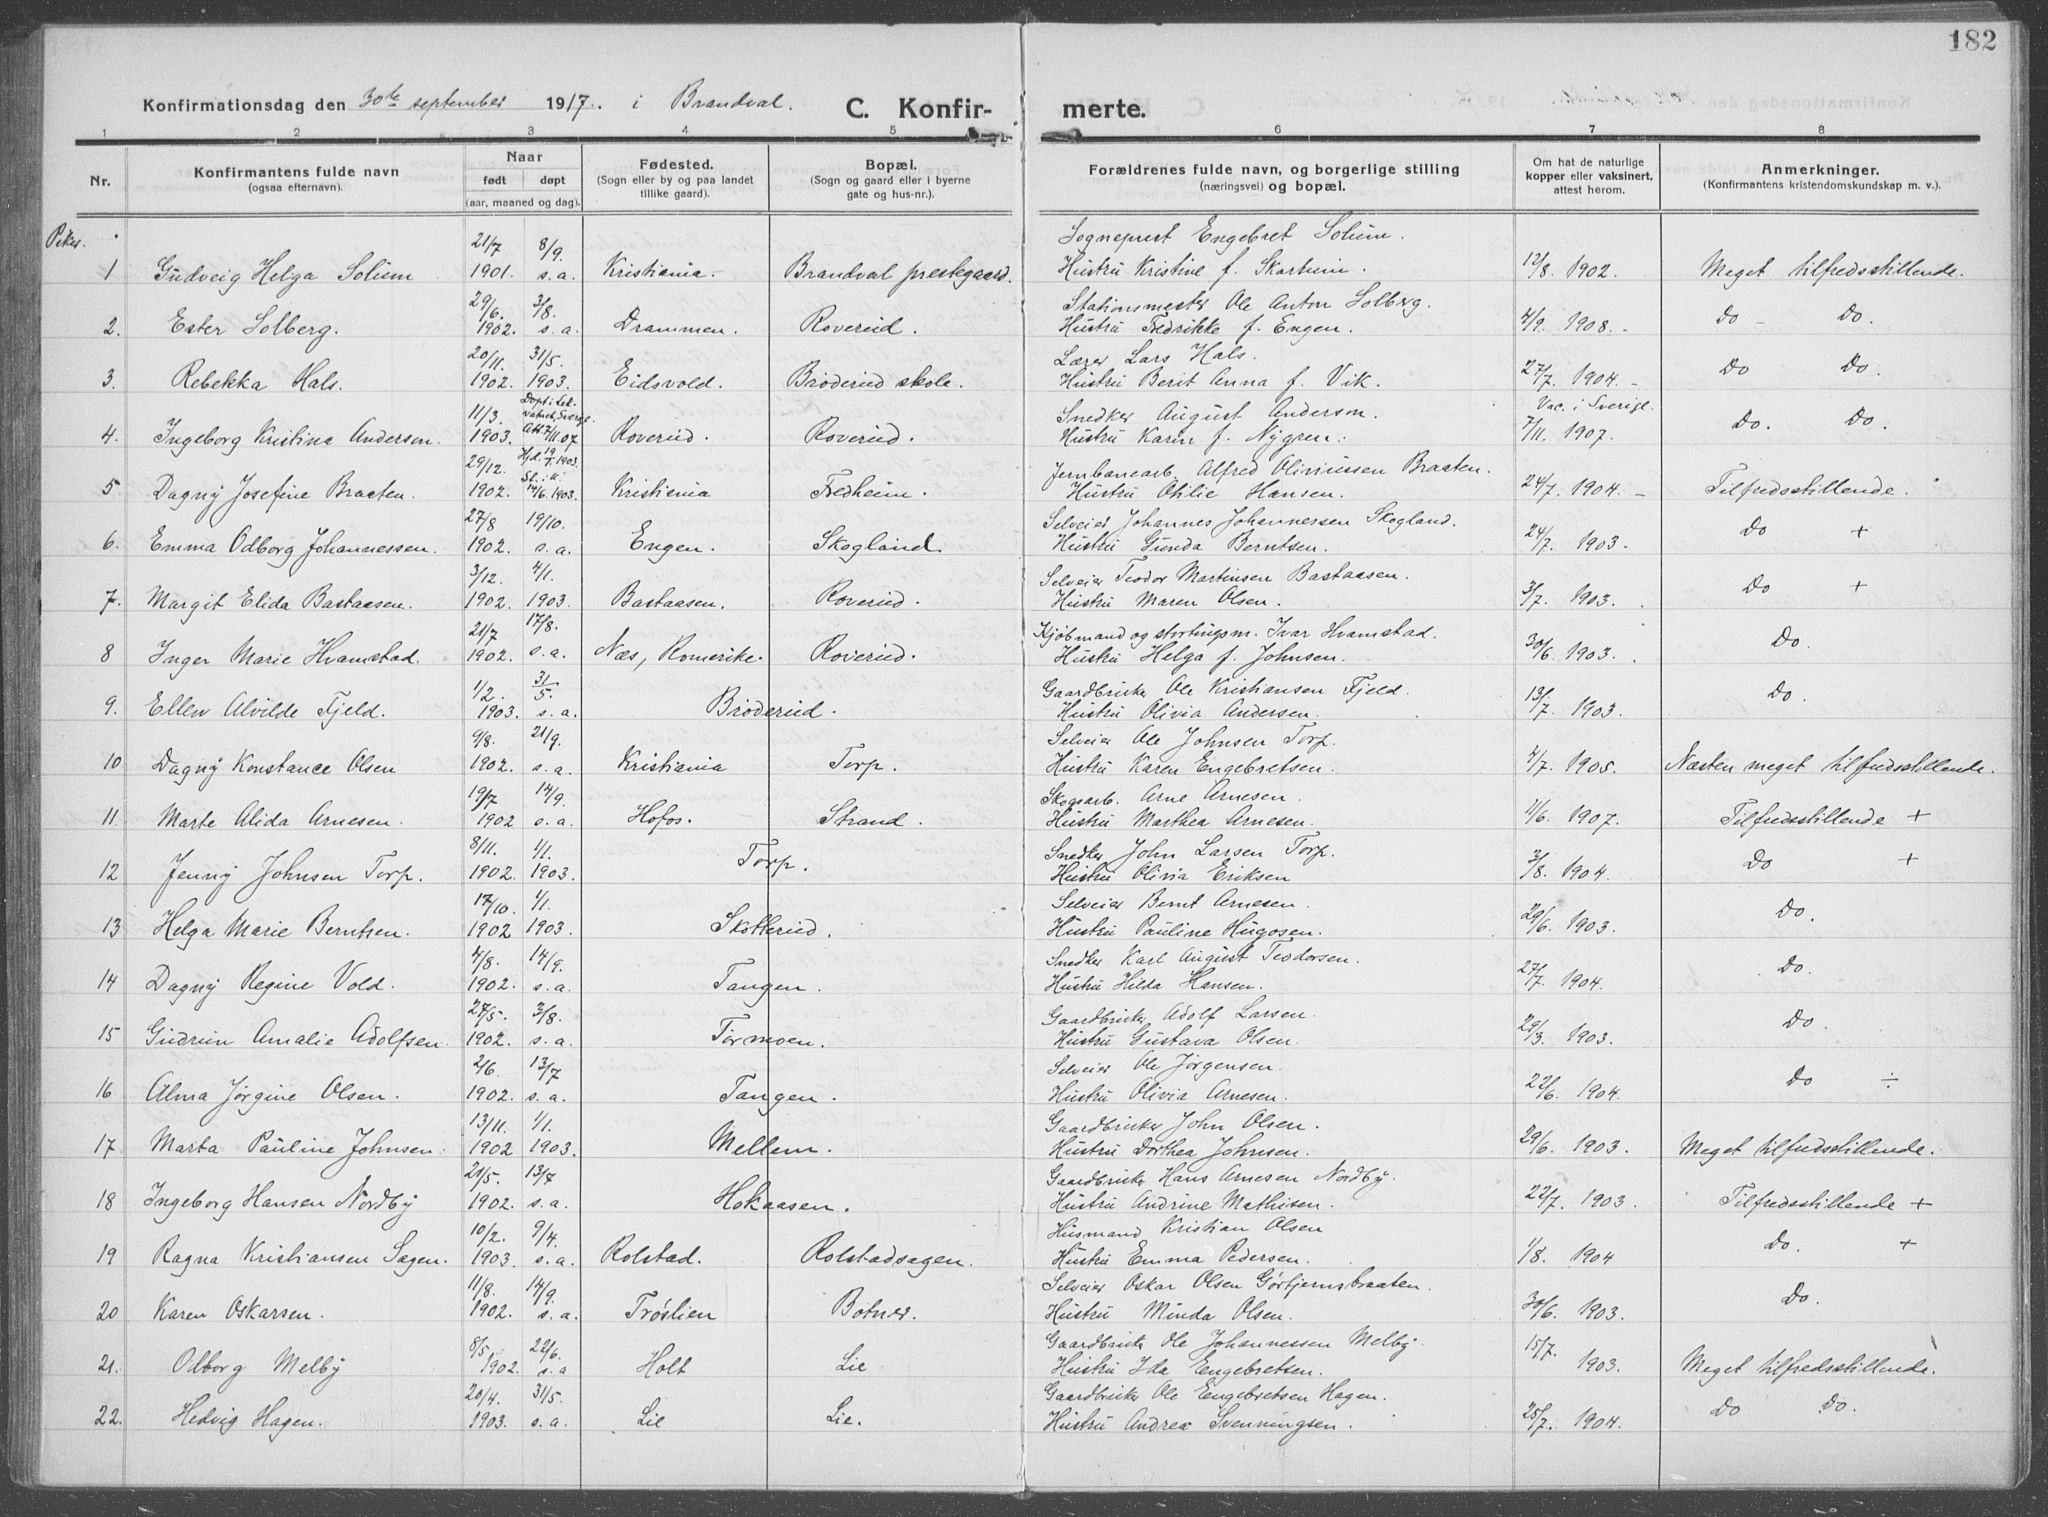 182
Konfirmationsdag den 30te september 1917. i Brandval. C. Konfir- merte.
1 2 3 4 5 6 7 8
Nr. Konfirmantens fulde navn (ogsaa efternavn). Naar født døpt (aar, maaned og dag). Fødested. (Sogn eller by og paa landet tillike gaard). Bopæl. (Sogn og gaard eller i byerne gate og hus-nr.). Forældrenes fulde navn, og borgerlige stilling (næringsvei) og bopæl. Om hat de naturlige kopper eller vaksinert, attest herom. Anmerkninger. (Konfirmantens kristendomskundskap m. v.).
Piker.
21/7 8/9. Sogneprest Engebret Solum.
1 Gudveig Helga Solum 1901. s.a. Kristiania. Brandval prestegaard. Hustru Kristine f. Skarheim. 12/8. 1902. Meget tilfredsstillende.
29/6. 3/8. Stationsmester Ole Anton Solberg.
2. Ester Solberg. 1902. s.a. Drammen. Roverud. Hustru Fredrikke f. Engen. 4/9. 1908. - Do - Do.
20/11. 31/5. Lærer Lars Hals.
3. Rebekka Hals. 1902. 1903. Eidsvold. Brøderud skole. Hustru Berit Anna f. Vik. 27/7. 1904. - Do Do.
11/3. Døpt i Sverige. Snedker August Anderson. Vac. i Sverige.
4. Ingeborg Kristina Anderson. 1903. Att. 7/11.07 Roverud. Roverud. Hustru Karin f. Nygren. 7/11. 1907. Do. Do.
29/12. Hjd. 19/1. 1903. Jernbanearb. Alfred Oliviussen Braaten.
5 Dagny Josefine Braaten. 1902. St. i k. 14/6. 1903. Kristiania Fredheim. Hustru Otilie Hansen. 24/7. 1904. - Tilfredsstillende.
27/8 19/10. Selveier Johannes Johannessen Skogland.
6. Emma Odborg Johannessen. 1902. s.a. Engen. Skogland. Hustru Gunda Berntsen. 24/7. 1903. Do +
3/12. 4/1. Selveier Teodor Martinsen Bastaasen.
7. Margit Elida Bastaasen. 1902. 1903. Bastaasen. Roverud. Hustru Maren Olsen. 3/7. 1903. Do +
21/7 17/8. Kjøbmand og stortingsm. Ivar Hvamstad.
8 Inger Marie Hvamstad. 1902. s.a. Næs, Romerike. Roverud. Hustru Helga f. Johnsen. 30/6. 1903. Do.
1/2. 31/5. Gaardbruker Ole Kristiansen Fjeld.
9. Ellen Alvilde Fjeld. 1903. s.a. Brøderud. Hustru Olivia Andersen. 13/7. 1903. Do.
9/8. 21/9. Selveier Ole Johnsen Torp.
10 Dagny Konstance Olsen 1902. s.a. Kristiania Torp. Hustru Karen Engebretsen. 4/7. 1905. Næsten meget tilfredsstillende.
19/7 14/9. Skogsarb. Arne Arnesen.
11. Marte Alida Arnesen. 1902 s.a. Hofos. Strand. Hustru Marthea Arnesen. 1/6. 1907. Tilfredsstillende +
8/11. 1/1. Snedker John Larsen Torp.
12 Jenny Johnsen Torp. 1902. 1903. Torp. Hustru Olivia Eriksen 3/8. 1904. Do +
17/10. 1/1. Selveier Bernt Arnesen.
13 Helga Marie Berntsen. 1902 1903. Skotterud. Hustru Pauline Hugosen. 29/6. 1903. Do.
4/8. 14/9. Snedker Karl August Teodorsen.
14 Dagny Regine Vold. 1902. s.a. Tangen. Hustru Hilda Hansen. 27/7. 1904. Do.
27/5. 3/8. Gaardbruker Adolf Larsen.
15 Gudrun Amalie Adolfsen. 1902. s.a. Tormoen. Hustru Gustava Olsen. 29/3. 1903. Do.
2/6. 13/7 Selveier Ole Jørgensen.
16 Alma Jørgine Olsen. 1902. s.a. Tangen. Hustru Olivia Arnesen. 22/6. 1904. Do ÷
13/11. 1/1. Gaardbruker John Olsen.
17. Marta Pauline Johnsen. 1902 1903. Mellem. Hustru Dorthea Johnsen. 29/6. 1903. Meget tilfredsstillende.
21/5. 13/7 Gaardbruker Hans Arnesen Nordby.
18 Ingeborg Hansen Nordby 1902. s.a. Hokaasen. Hustru Andrine Mathisen. 22/7. 1903. Tilfredsstillende +
10/2. 9/4. Husmand Kristian Olsen
19 Ragna Kristiansen Sagen. 1903. s.a. Rolstad. Rolstadsagen. Hustru Emma Pedersen. 1/8. 1904 Do. +
11/8. 14/9. Selveier Oskar Olsen Gørtjernsbraaten
20 Karen Oskarsen. 1902. s.a. Trøslien Botner. Hustru Minda Olsen. 30/6. 1903. Do.
8/5. 22/6. Gaardbruker Ole Johannessen Melby.
21. Odborg Melby 1902. s.a Holt Lie Hustru Ida Engebretsen. 15/7. 1903. Meget tilfredsstillende.
20/4. 31/5. Gaardbruker Ole Engebretsen Hagen.
22. Hedvig Hagen. 1903. s.a. Lie Lie. Hustru Andrea Svenningsen. 25/7. 1904. Do Do.